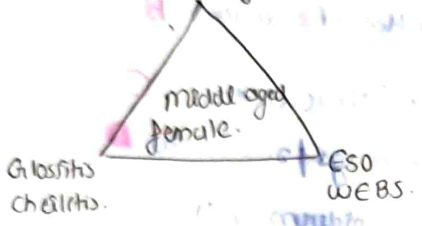 middle aged
female.
Glossitis
cheilitis.
ESO
WEBS.